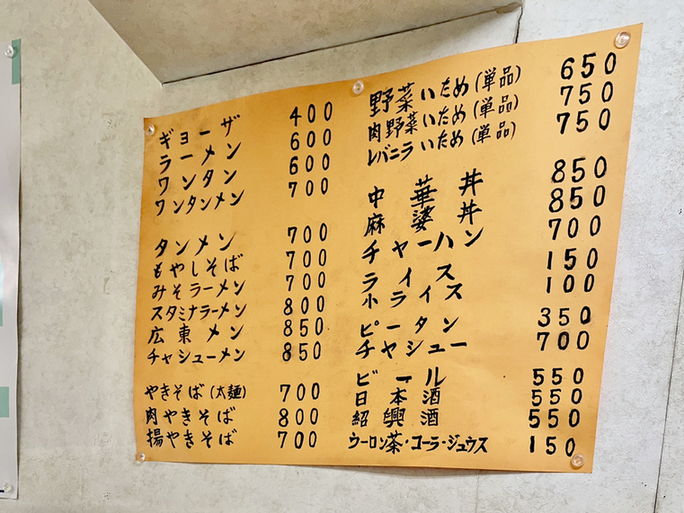 ギョーザ 400
ラーメン 600
ワンタン 600
ワンタンメン 700
タンメン 700
もやしそば 700
みそラーメン 700
スタミナラーメン 800
広東メン 850
チャシューメン 850
やきそば(太麺) 700
肉やきそば 800
揚やきそば 700
野菜いため(単品) 650
肉野菜いため(単品) 750
レバニラいため(単品) 750
中華丼 850
麻婆丼 850
チャーハン 700
ライス 150
小ライス 100
ピータン 350
チャシュー 700
ビール 550
日本酒 550
紹興酒 550
ウーロン茶・コーラ・ジュウス 150